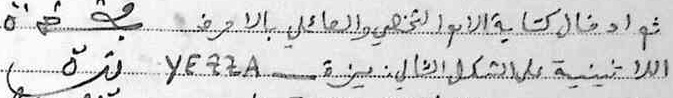 ثم ادخال كتابية الاسم الشخصي والعائلي بالاحرف
اللاتينية على الشكل التالي: يزة YEZZA